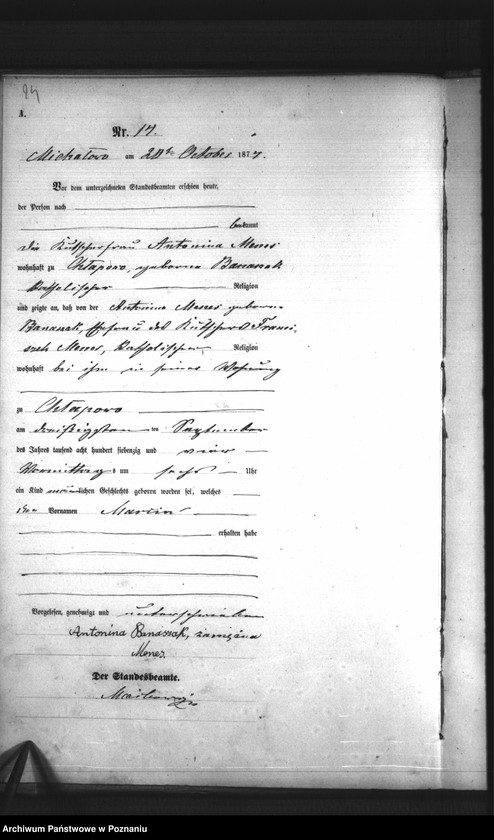 94
A.
Nr. 17.
Michałowo am 20ten October 1874.
Vor dem unterzeichneten Standesbeamten erschien heute,
der Person nach
bekannt
die Kutscherfrau Antonina Menes
wohnhaft zu Chłapowo, geborne Banaszak
katholischer Religion
und zeigte an, daß von der Antonina Menes geborne
Banaszak, Ehefrau des Kutschers Franci,
szek Menes, katholischer, Religion
wohnhaft bei ihm in seiner Wohnung
zu Chłapowo
am dreißigsten ten September
des Jahres tausend acht hundert siebenzig und vier
Vormittags um sechs Uhr
ein Kind männlichen Geschlechts geboren worden sei, welches
den Vornamen Marcin
erhalten habe
Vorgelesen, genehmigt und unterschrieben
Antonina Banaszak, zamężna
Menes.
Der Standesbeamte.
Archiwum Państwowe w Poznaniu